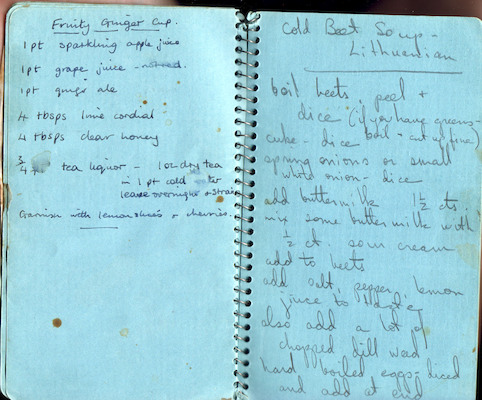 Fruity Ginger Cup.
1 pt sparkling apple juice
1 pt grape juice - not red.
1 pt ginger ale
4 tbsps lime cordial
4 tbsps clear honey
3/4 pt tea liquor - 1 oz dry tea
in 1 pt cold water
leave overnight & strain
Garnish with lemon slices & cherries.
Cold Beet Soup -
Lithuanian
boil beets, peel +
dice (if you have greens -
boil - cut up fine)
cuke - dice
spring onions or small
white onion - dice
add buttermilk 1 1/2 cts.
mix some buttermilk with
1/2 ct. sour cream
add to beets
add salt, pepper, lemon
juice to taste
also add a lot of
chopped dill weed
hard boiled eggs - diced
and add at end